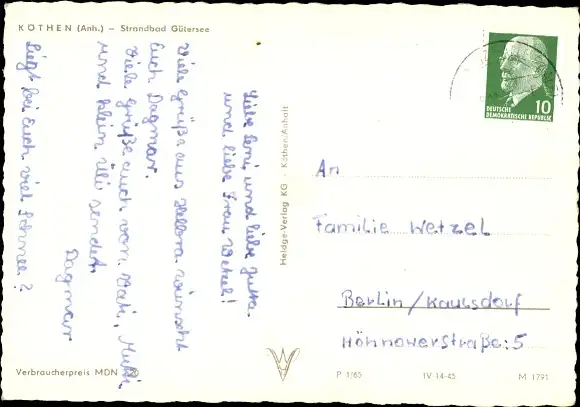 KÖTHEN (Anh.) – Strandbad Gütersee
Liebe Leni, und liebe Jutta.
und liebe Frau Wetzel!
Viele Grüße aus wünscht
Euch Dagmar.
Viele Grüße auch von Vati, Mutti
und klein Uli sendet
Dagmar
Liegt bei Euch viel Schnee?
Verbraucherpreis MDN
Heldge-Verlag KG · Köthen/Anhalt
10
DEUTSCHE
DEMOKRATISCHE REPUBLIK
An
Familie Wetzel
Berlin/Kaulsdorf
Hönnowerstraße: 5
P 1/65
IV-14-45
M 1791